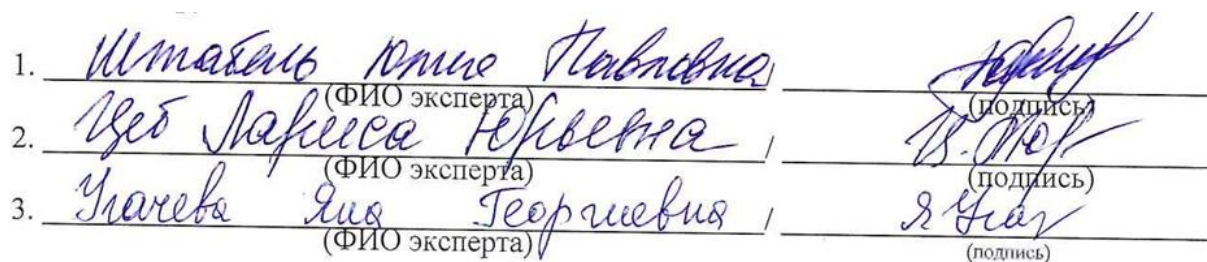 1. Штабель Юлия Павловна /
(ФИО эксперта) (подпись)
2. Цеб Лариса Юрьевна /
(ФИО эксперта) (подпись)
3. Угачева Яна Георгиевна / Я Угач
(ФИО эксперта) (подпись)